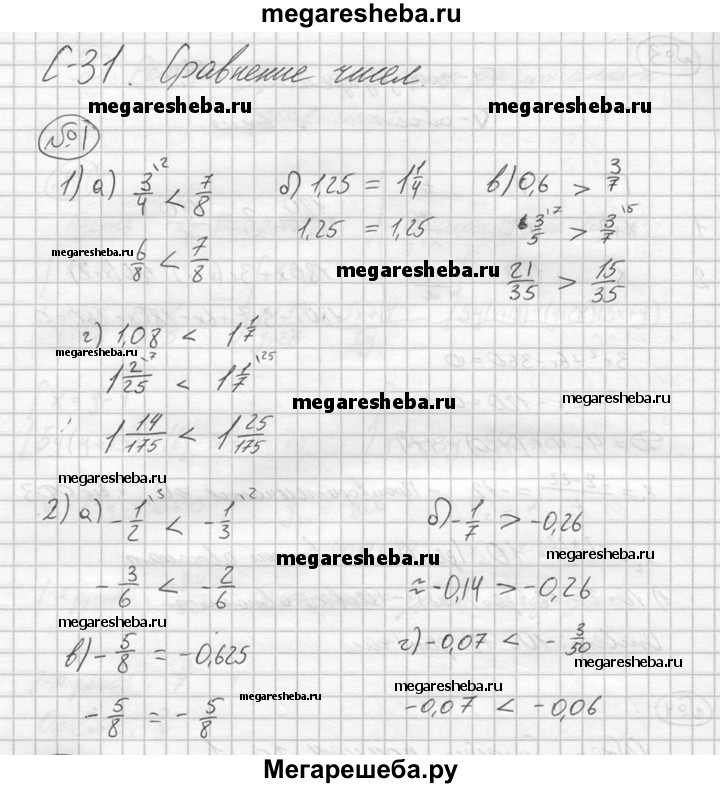 megaresheba.ru
С-31. Сравнение чисел.
megaresheba.ru megaresheba.ru
№1
1) а) 3/4 \2 < 7/8 б) 1,25 = 1 1/4 в) 0,6 > 3/7
1,25 = 1,25 3/5 \7 > 3/7 \5
megaresheba.ru 6/8 < 7/8 megaresheba.ru 21/35 > 15/35
г) 1,08 < 1 1/7
megaresheba.ru
1 2/25 \7 < 1 1/7 \25
megaresheba.ru megaresheba.ru
1 14/175 < 1 25/175
megaresheba.ru
2) а) -1/2 \3 < -1/3 \2 б) -1/7 > -0,26
megaresheba.ru megaresheba.ru
-3/6 < -2/6 ≈ -0,14 > -0,26
megaresheba.ru
в) -5/8 = -0,625 г) -0,07 < -3/50
megaresheba.ru
megaresheba.ru megaresheba.ru
-5/8 = -5/8 -0,07 < -0,06
megaresheba.ru
Мегарешеба.ру